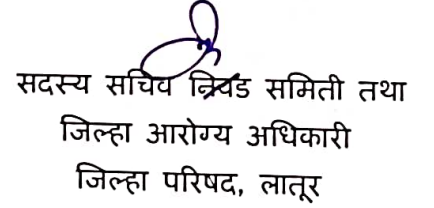 सदस्य सचिव निवड समिती तथा
जिल्हा आरोग्य अधिकारी
जिल्हा परिषद, लातूर